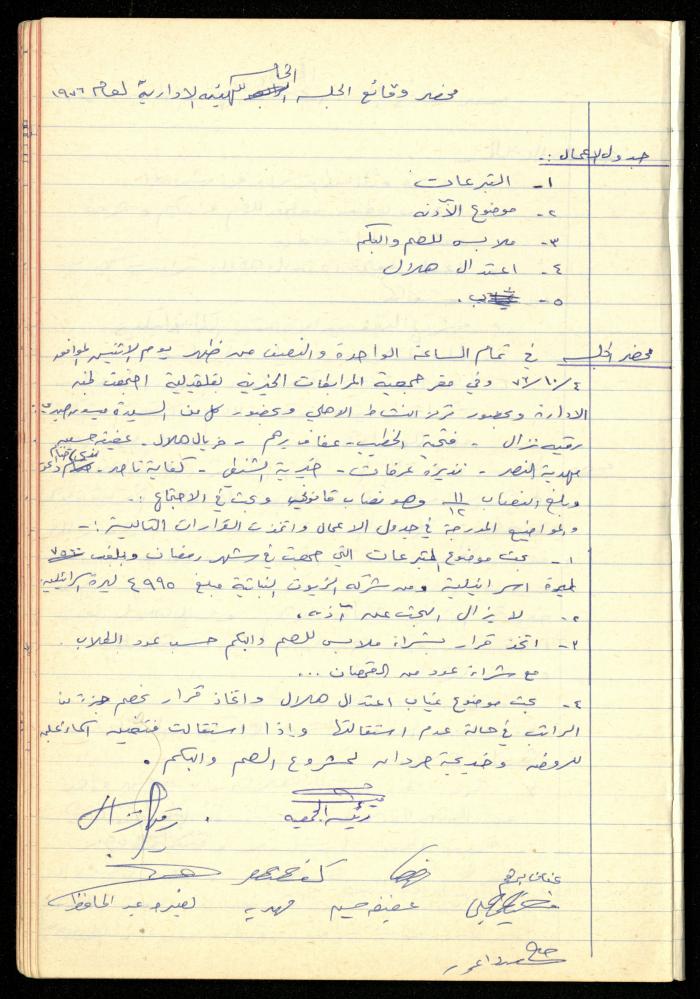 محضر وقائع الجلسة الخامسة للهيئة الادارية لعام ١٩٧٦
جدول الاعمال :.
١- التبرعات
٢- موضوع الآذنه
٣- ملابس للصم والبكم
٤- اعتدال هلال
٥-
محضر الجلسه في تمام الساعة الواحدة والنصف من ظهر يوم الاثنين الموافق
٤/١٠/٧٦ وفي مقر جمعية المرابطات الخيرية بقلقيلية اجتمعت لجنة
الادارة وبحضور مركز النشاط الاهلي وبحضور كل من السيدة
رقيه نزال - فتحية الخطيب - عفاف برهم - فريال هلال - عفيفة حسين
مهدية النصر - نذيرة عرفات - خيرية الشنطي - كفاية ناصر -
وبلغ النصاب ١١/١٢ وهو نصاب قانوني وبحث في الاجتماع :.
والمواضيع المدرجة في جدول الاعمال واتخذت القرارات التالية :-
١- بحث موضوع التبرعات التي جمعت في شهر رمضان وبلغت ٧٥٦٠
ليرة اسرائيلية ومن شركة الزيوت النباتية مبلغ ٤٩٩٥ ليرة اسرائيلية
٢- لا يزال البحث عن آذنه .
٣- اتخذ قرار بشراء ملابس للصم والبكم حسب عدد الطلاب
مع شراء عدد من القمصان ...
٤- بحث موضوع غياب اعتدال هلال واتخاذ قرار بخصم جزء من
الراتب في حالة عدم استقالتها واذا استقالت فتعيين
للروضه وخديجة لمشروع الصم والبكم .
رئيسة الجمعيه
عفاف برهم
عفيفه حسين مهديه عبد الحافظ